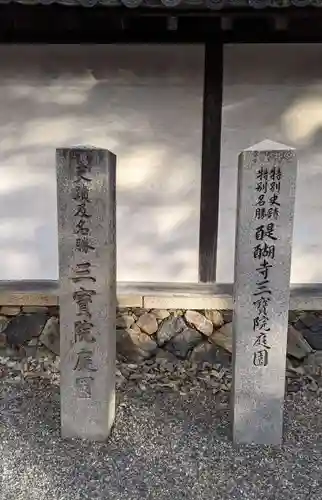 特別史跡
特別名勝
醍醐寺三寳院庭園
史蹟及名勝
三寳院庭園